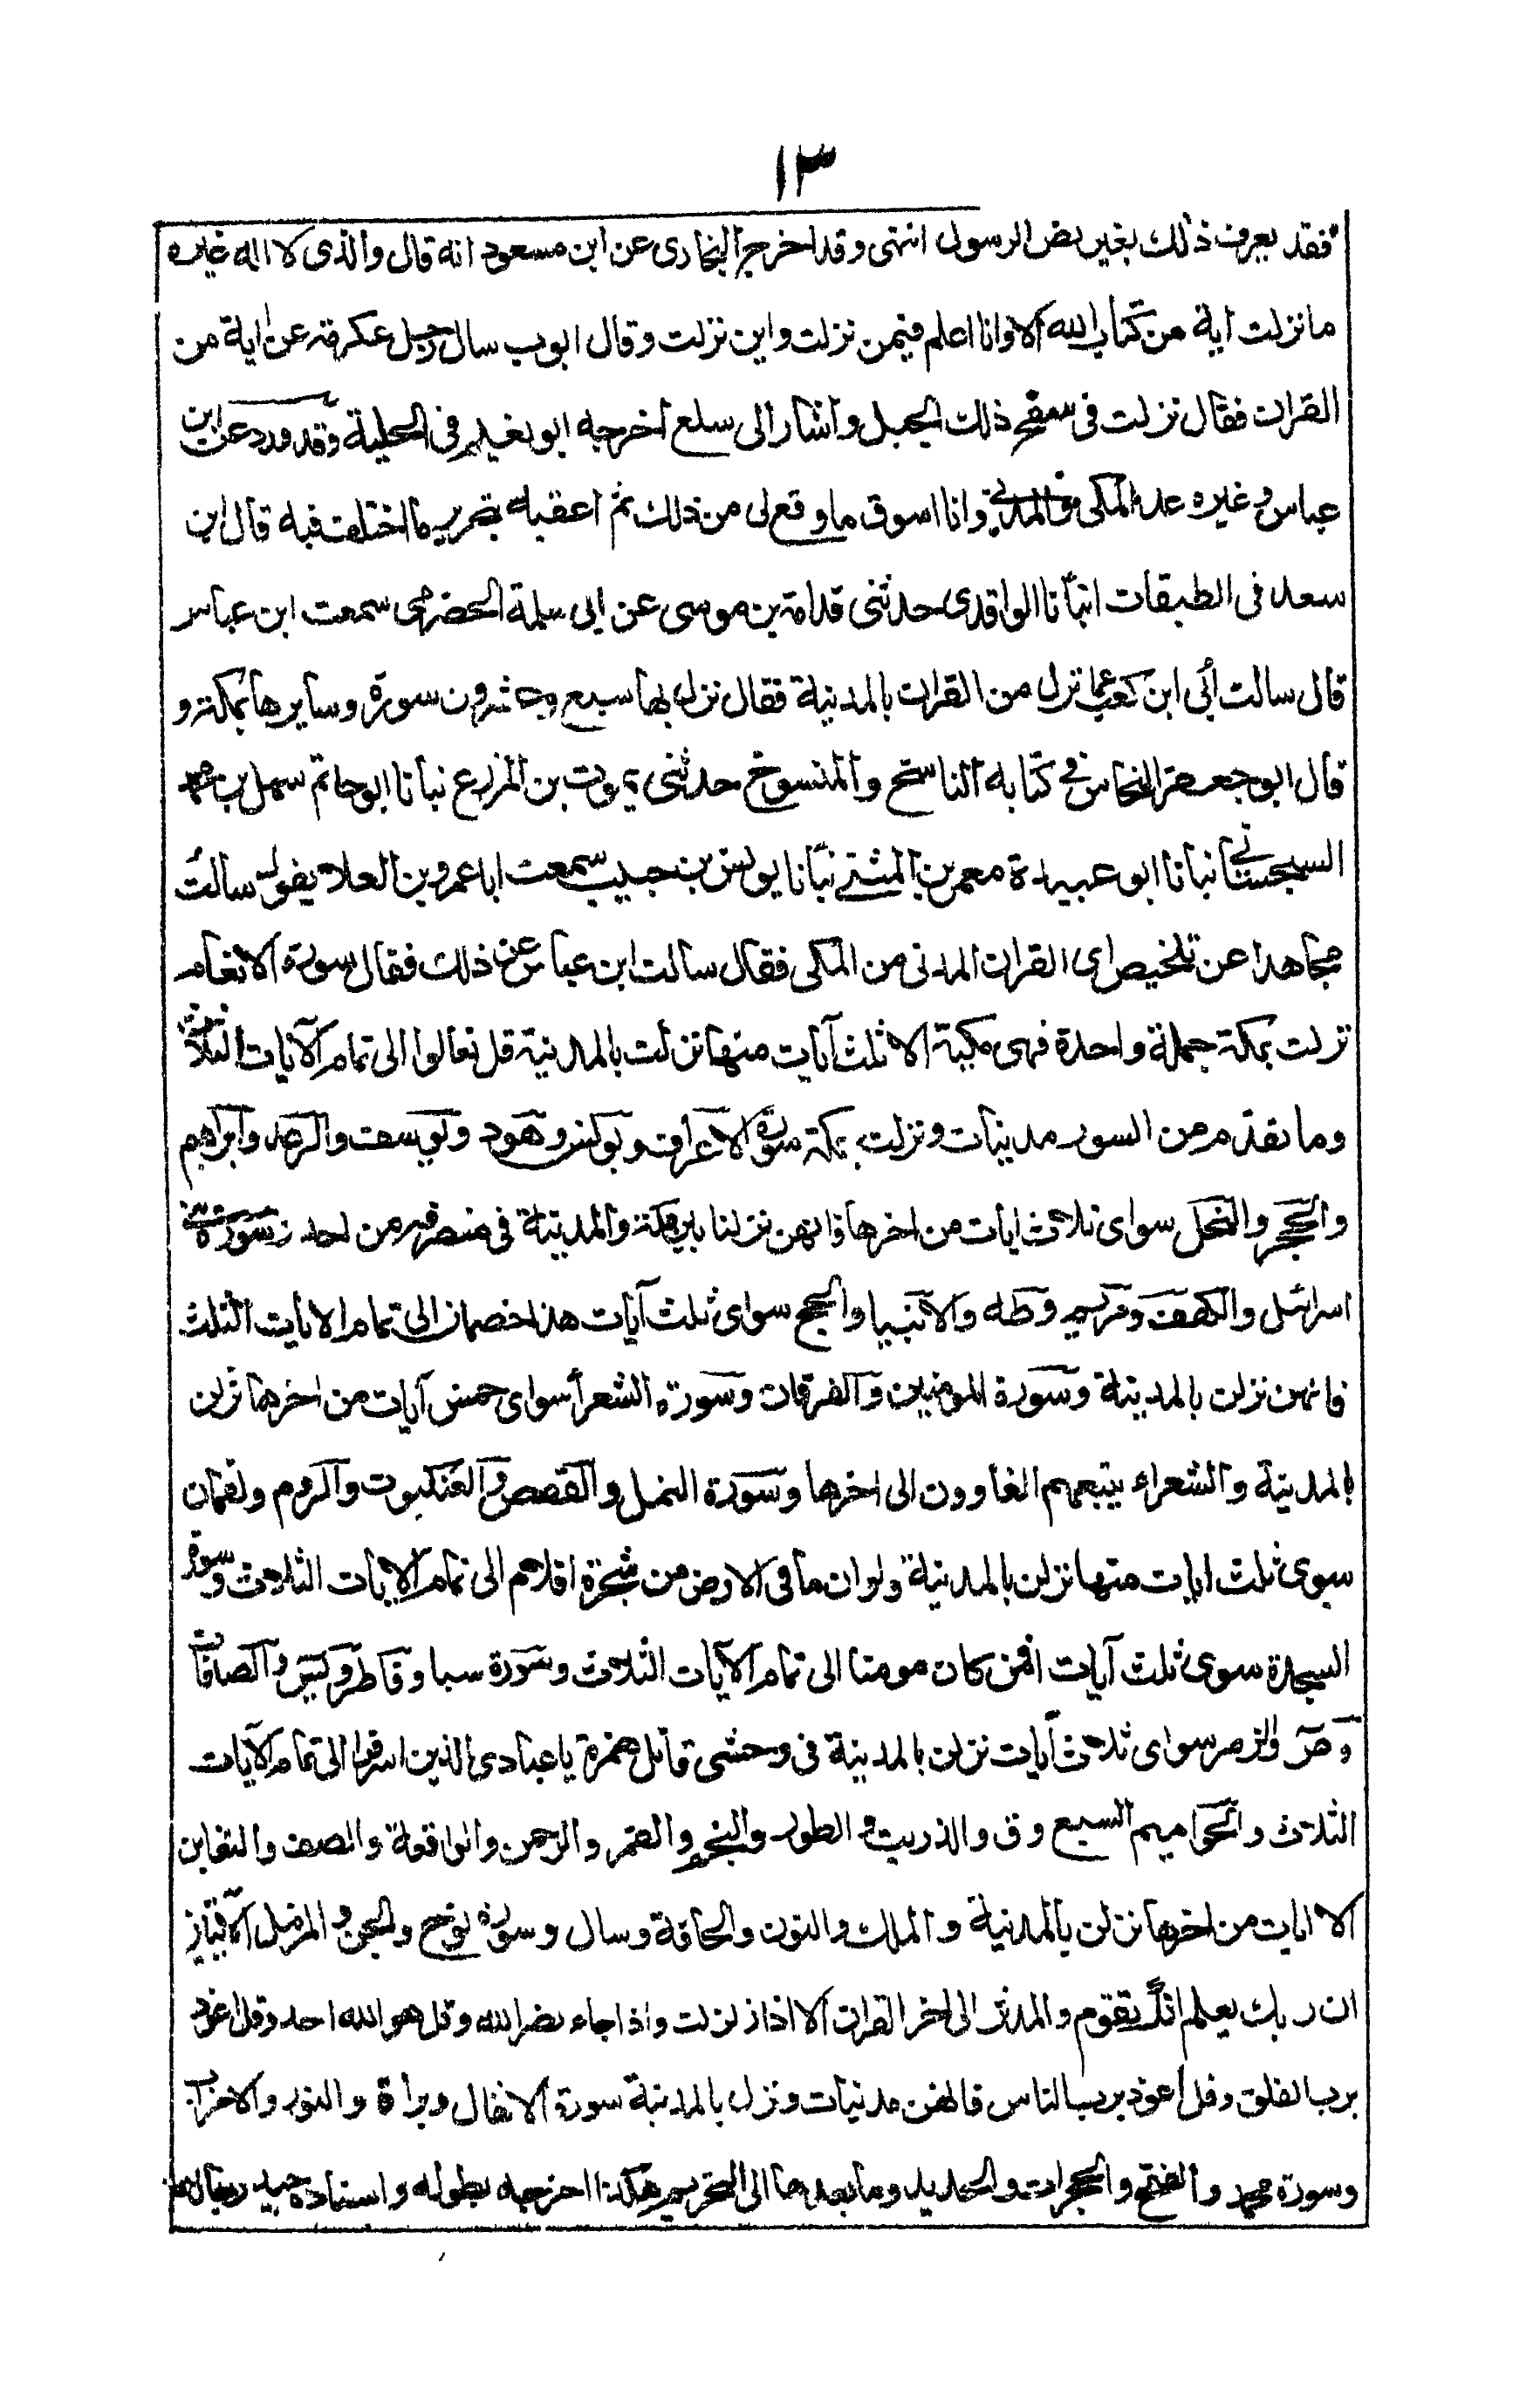 ١٣
فقد يعرف ذلك بغير نص الرسول انتهى وقد اخرج البخاري عن ابن مسعود انه قال والذي لا اله غيره
ما نزلت آية من كتاب الله الا وانا اعلم فيمن نزلت واين نزلت وقال ايوب سال رجل عكرمة عن اية من
القران فقال نزلت في سفح ذلك الجبل واشار الى سلع اخرجه ابو نعيم في الحلية وقد ورد عن ابن
عباس وغيره عد المكي والمدني وانا اسوق ما وقع لى من ذلك ثم اعقبه بتحرير ما اختلف فيه قال ابن
سعد في الطبقات انبأنا الواقدي حدثني قدامة بن موسى عن ابي سلمة الحضرمي سمعت ابن عباس
قال سالت أبي ابن كعب عما نزل من القران بالمدينة فقال نزل بها سبع وعشرون سورة وسايرها بمكة و
قال ابو جعفر النحاس في كتابه الناسخ والمنسوخ حدثني يموت بن المزرع نبانا ابو حاتم سهل بن محمد
السجستاني انبانا ابو عبيدة معمر بن المثنى نبأنا يونس بن حبيب سمعت ابا عمرو بن العلاء يقول سالت
مجاهدا عن تلخيص اى القران المدني من المكي فقال سالت ابن عباس عن ذلك فقال سورة الانعام
نزلت بمكة جملة واحدة فهي مكية الا ثلث آيات منها نزلت بالمدينة قل تعالوا الى تمام الآيات الثلاث
وما تقدم من السور مدنيات ونزلت بمكة سورة الاعراف ويونس وهود ويوسف والرعد وابراهيم
والحجر والنحل سواى ثلاث ايات من اخرها فانهن نزلنا بين مكة والمدينة في منصرفه من احد وسورة بني
اسرائيل والكهف ومريم وطه والانبيا والحج سواى ثلث آيات هذا خصمان الى تمام الايات الثلث
فانهن نزلن بالمدينة وسورة المومنين والفرقان وسورة الشعرأ سواى خمس آيات من اخرها نزلن
بالمدينة والشعراء يتبعهم الغاوون الى اخرها وسورة النمل والقصص والعنكبوت والروم ولقمان
سوى ثلث ايات منها نزلن بالمدينة ولو ان ما في الارض من شجرة اقلام الى تمام الايات الثلاث وسورة
السجدة سوى ثلث آيات افمن كان مومنا الى تمام الآيات الثلاث وسورة سبا وفاطر ويس والصافات
وص والزمر سواى ثلاث آيات نزلن بالمدينة في وحشي قاتل حمزة يا عبادي الذين اسرفوا الى تمام الآيات
الثلاث والحواميم السبع وق والذريت والطور والنجم والقمر والرحمن والواقعة والصف والتغابن
الا ايات من اخرها نزلن بالمدينة والملك والنون والحاقة وسال وسورة نوح والجن والمزمل الا آيتين
ان ربك يعلم انك تقوم والمدثر الى اخر القران الا اذا زلزلت واذا جاء نصر الله وقل هو الله احد وقل اعوذ
برب الفلق وقل اعوذ برب الناس فانهن مدنيات ونزل بالمدينة سورة الانفال وبراة والنور والاحزاب
وسورة محمد والفتح والحجرات والحديد وما بعدها الى التحريم هكذا اخرجه بطوله واسناده جيد رجاله